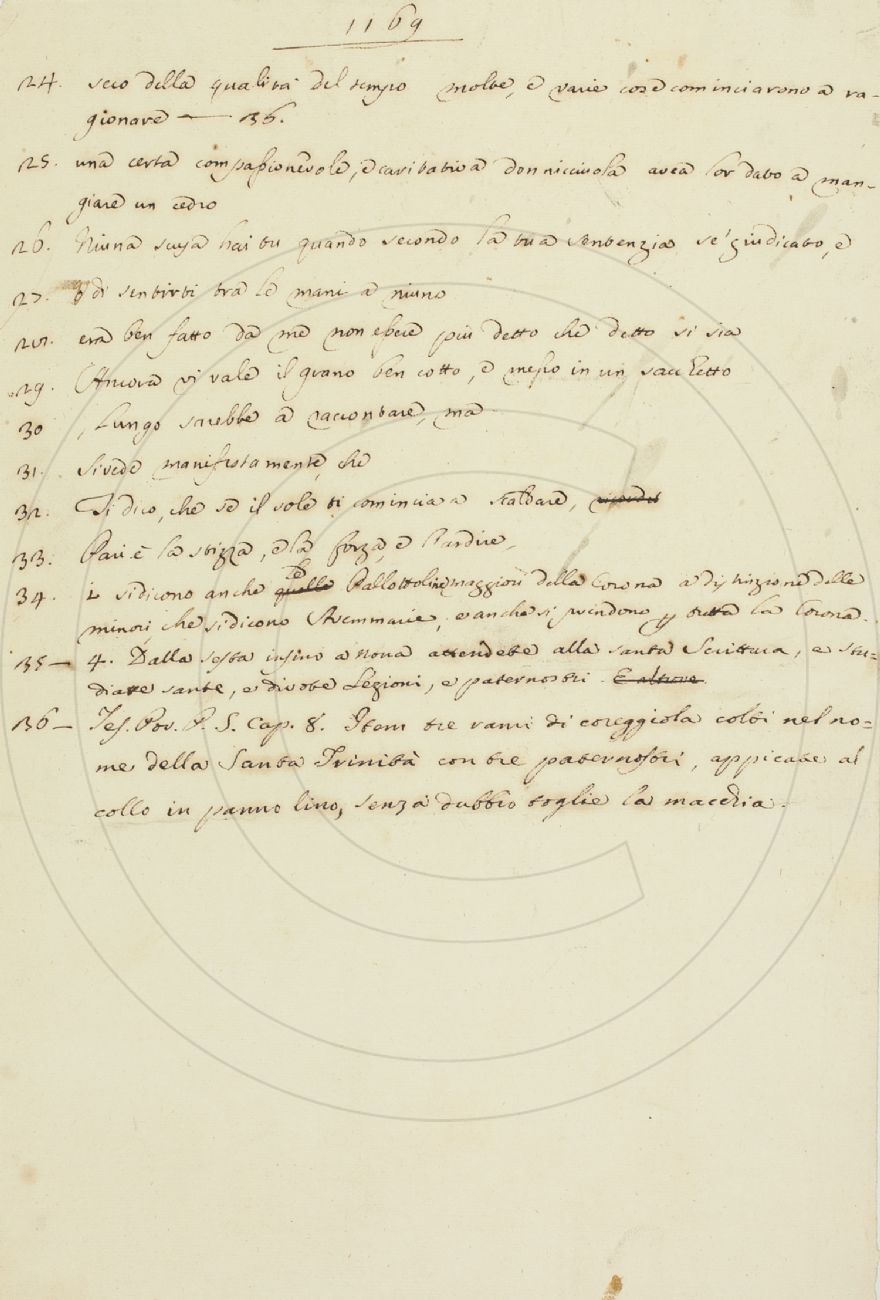 1169
24. seco della qualità del tempo molte, e varie cose cominciarono a ra-
gionare — 136.
25. una certa compassionevole, e caritativa donnicciuola avea lor dato a man-
giare un cedro
26. Niuna scusa hai tu quando secondo la tua sentenzia se' giudicato, e
27. di sentirti tra le mani a niuno
28. era ben fatto da me non esserse più detto che detto si sia
29. Ancora vi vale il grano ben cotto, e messo in un sacchetto
30 , Lungo sarebbe a raccontare, ma
31. Si vede manifestamente, che
132. Ti dico, che se il sole ti comincia a scaldare,
133. Pari è la stizza, e la forza, e l'ardire,
134. si dicono anche quelle le Pallottoline maggiori della Corona a distinzione delle
minori, che si dicono Avemmarie, e anche si prendono p tutta la Corona.
135— 4. Dalla sesta insino a nona attendete alla santa Scrittura, e stu=
diate sante, e divote Lezioni, e paternostri. E altrove
136— Tes. Pov. P. S. Cap. 8. Item tre rami di coreggiola colti nel no=
me della Santa Trinità con tre paternostri, appicate al
collo in panno lino, senza dubbio toglie la macchia.